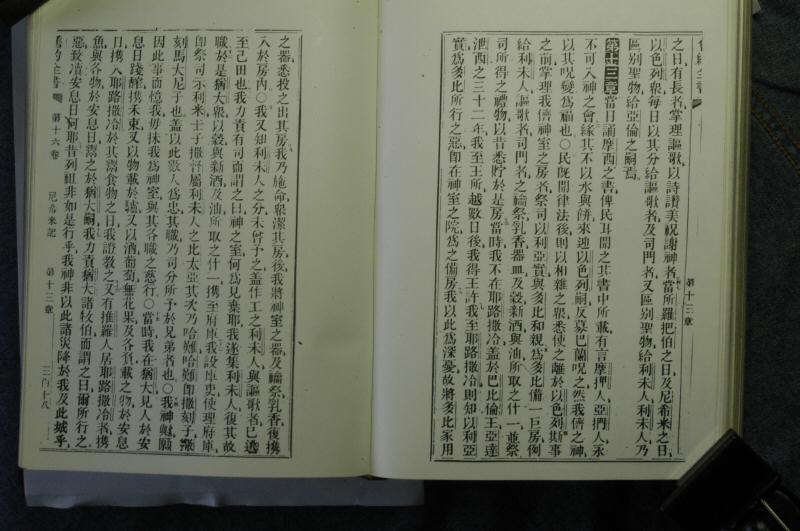 第十三章
之日有長者掌理謳歌以詩讚美祝謝神者當所羅把伯之日及尼希米之日
以色列眾每日以其分給謳歌者及司門者又區別聖物給利未人利未人乃
區別聖物給亞倫之嗣焉
第十三章當日誦摩西之書傳民耳聞之其書中所載有言摩押人亞捫人永
不可入神之會緣其不以水與餅來迎以色列嗣反募巴蘭呪之然我儕之神
以其呪變為福也○民既聞律法後則以相雜之眾悉使之離於以色列斯事
之前掌理我儕神室之房者祭司以利亞實與多比和親為多比備一巨房例
給利未人謳歌者司門者之禴祭乳香器皿及穀新酒與油所取之什一並祭
司所得之禮物以昔悉貯於是房當時我不在耶路撒冷蓋於巴比倫王亞達
泄西之三十二年我至王所越數日後我得王許我至耶路撒冷則知以利亞
實為多比所行之惡即在神室之院為之備房我以此為深憂故將多比家用
之器悉投之出其房我乃施命眾潔其房後我將神室之器及禴祭乳香復攜
入於房內○我又知利未人之分未曾予之蓋作工之利未人與謳歌者已逃
至己田也我力責有司而謂之曰神之室何為見棄耶我遂集利未人復其故
職於是猶大眾以穀與新酒及油所取之什一攜至府庫我設庫吏使理府庫
即祭司示利米士子撒督屬利未人之比太亞其次乃哈難哈難即撒刻子撒
刻馬大尼子也蓋以此數人為忠其職乃司分所予於兄弟者也○我神歟願
因此事而憶我毋抹我為神室與其各職之慈行○當時我在猶大見人於安
息日踐醡攜禾束又以物載於驢又以酒葡萄無花果及各負載之物於安息
日攜入耶路撒冷於其鬻食物之日我證教之又有推羅人居耶路撒冷者攜
魚與各物於安息日鬻之於猶大嗣我力責猶大諸牧伯而謂之曰爾所行之
惡致瀆安息日何耶昔列祖非如是行乎我神非以此諸災降於我及此城乎
舊約全書 第十六卷 尼希米記 第十三章 三百十八